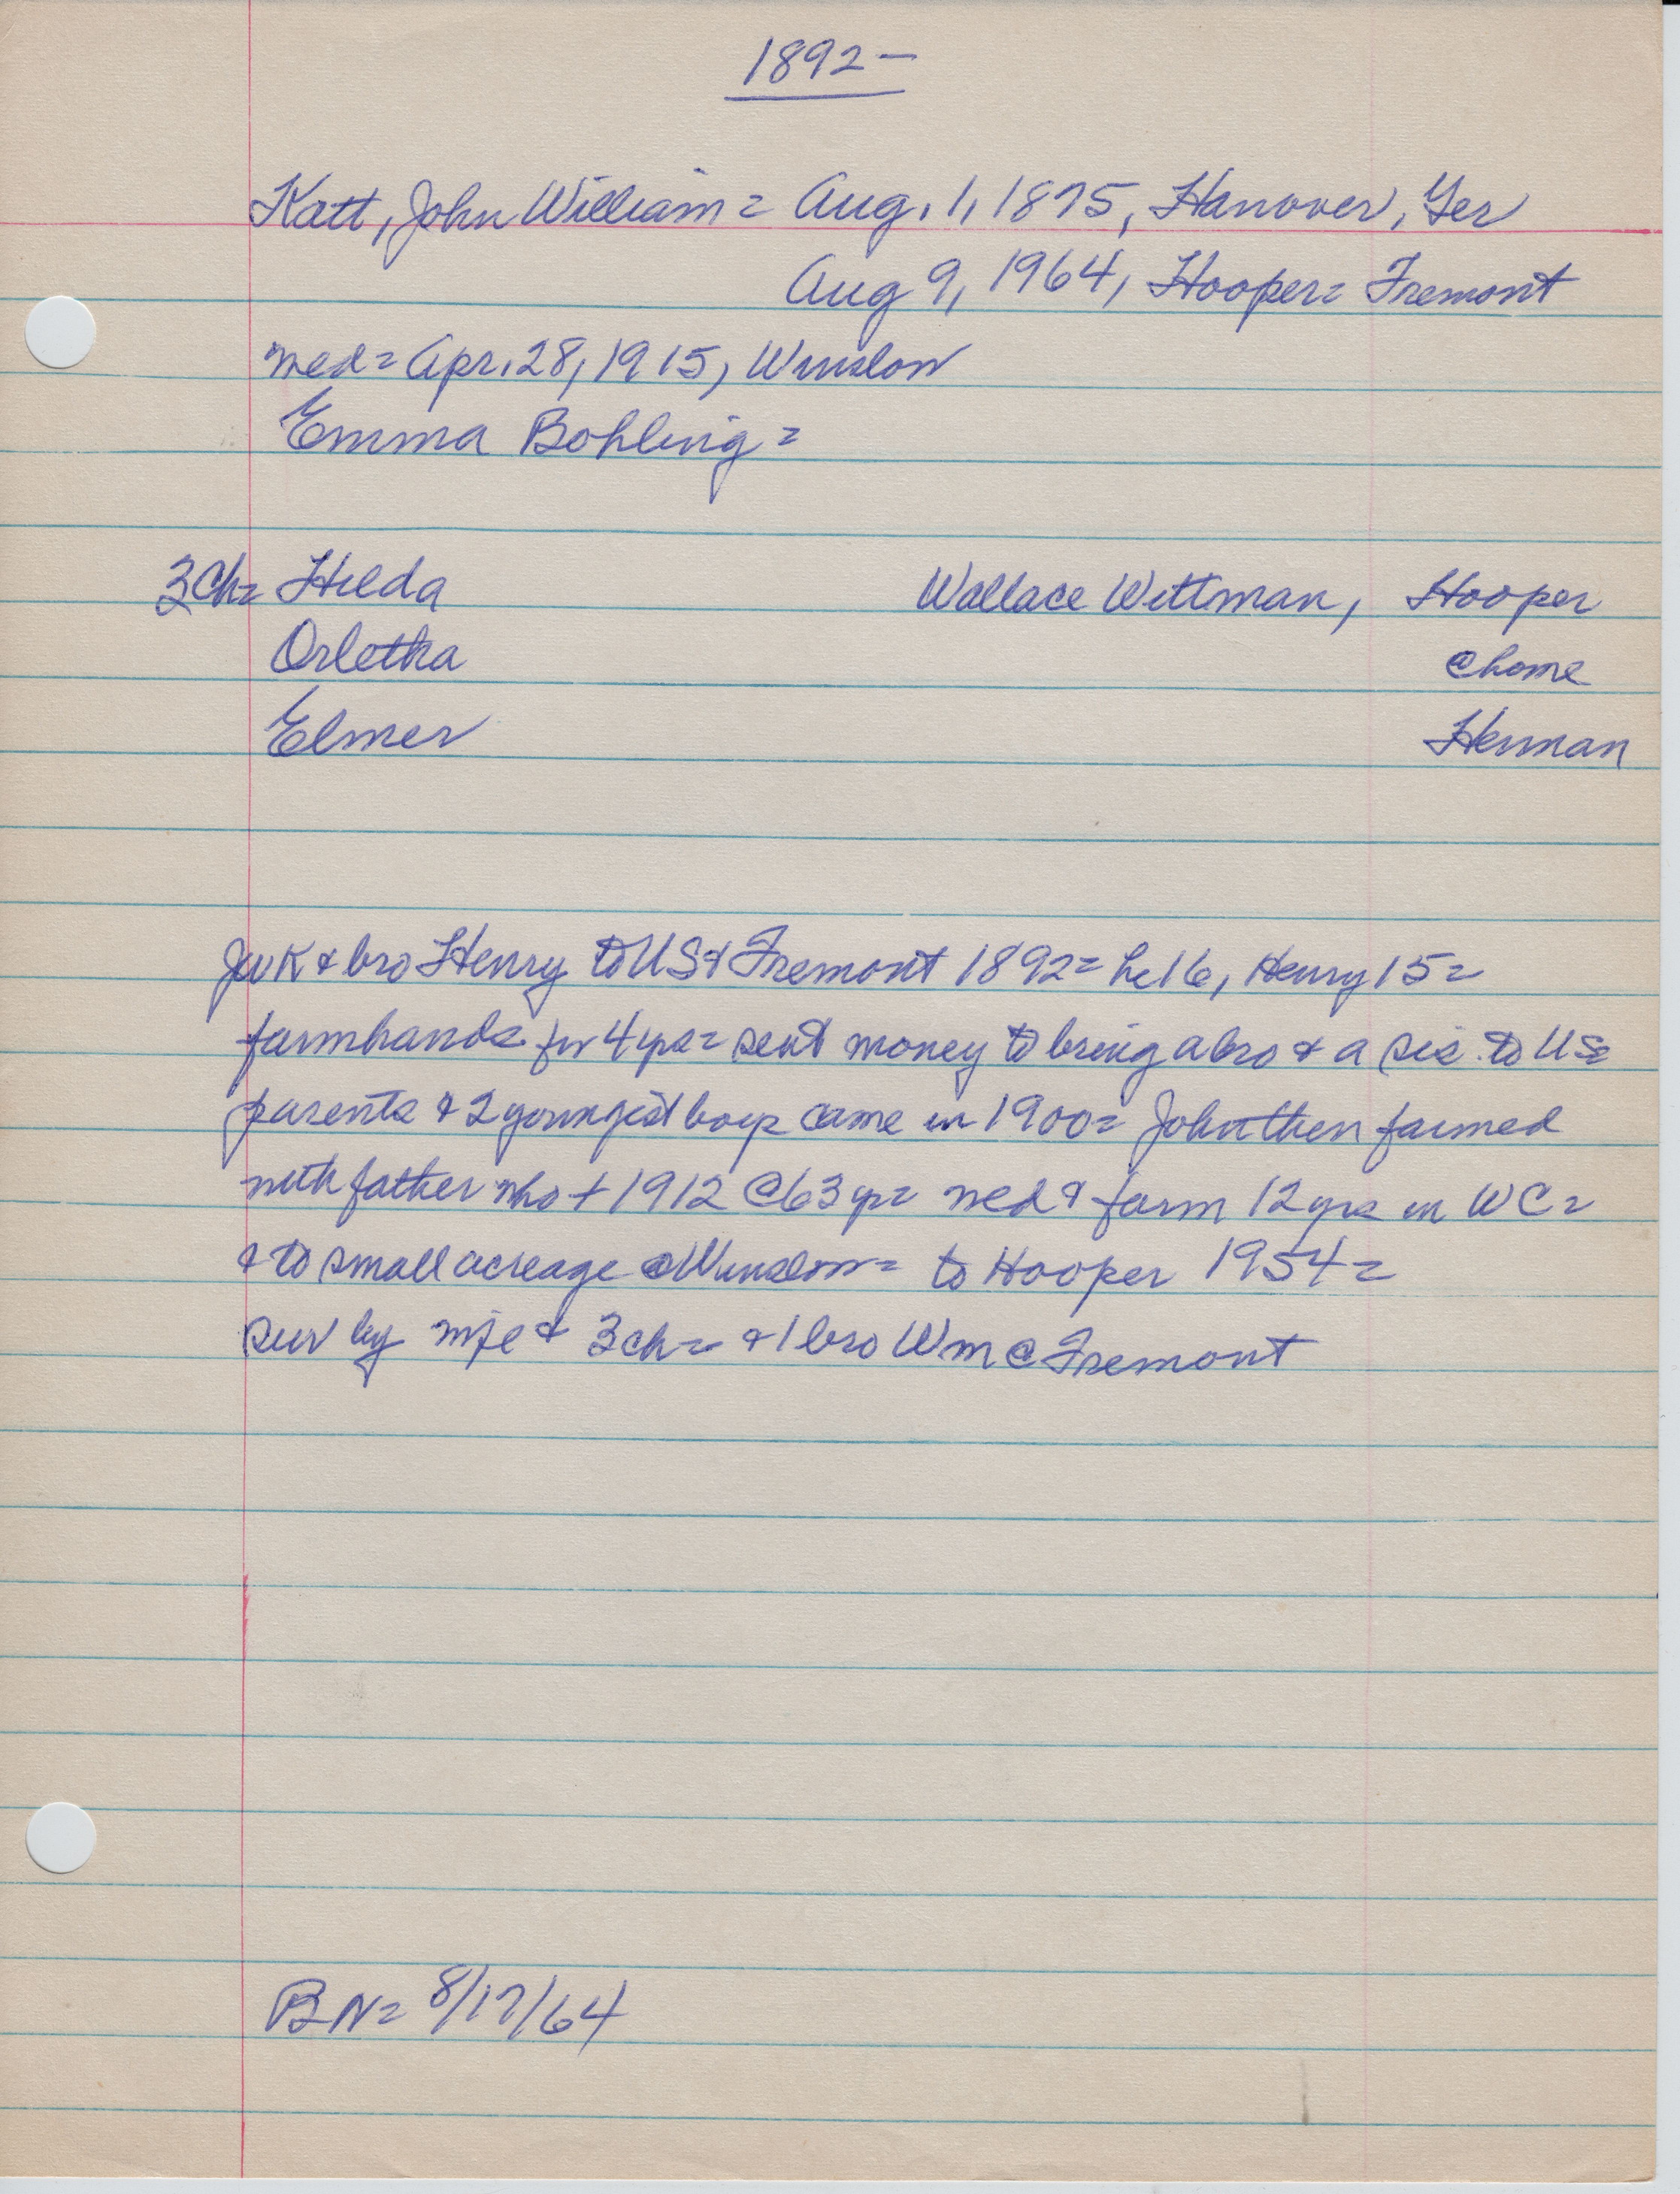 1892-
Katt, John William = Aug. 1, 1875, Hanover, Ger
Aug 9, 1964, Hooper = Fremont
med = Apr. 28, 1915, Winslow
Emma Bohling =
3 Ch = Hilda Wallace Wittman, Hooper
Orletha @ home
Elmer Herman
JWK & bro Henry to US & Fremont 1892 = he 16, Henry 15 =
farmhands for 4 yrs = sent money to bring a bro & a sis to US =
parents & 2 youngest boys came in 1900 = John then farmed
with father who + 1912 @ 63 yr = med & farm 12 yrs in WC =
& to small acreage @ Winslow = to Hooper 1954 =
surv by wife & 3 ch = & 1 bro Wm @ Fremont
BN = 8/17/64